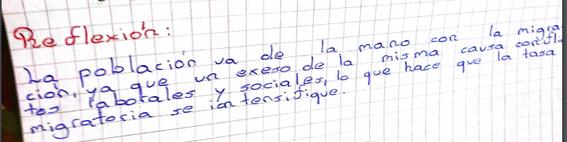 Reflexión:
La población va de la mano con la migra
ción, ya que un exeso de la misma causa conflic
tos laborales y sociales, lo que hace que la tasa
migratoria se intensifique.